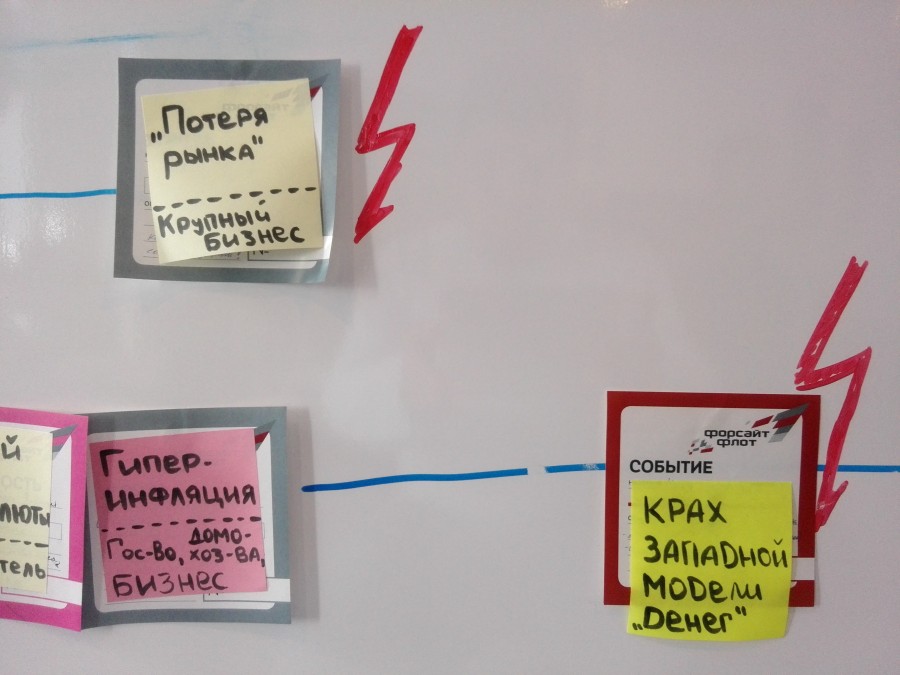 „Потеря
рынка"
Крупный
бизнес
й
люты
тель
Гипер-
инфляция
Гос-во, домо-
хоз-ва,
бизнес
форсайт
флот
СОБЫТИЕ
КРАХ
ЗАПАДНОЙ
МОДЕЛИ
„Денег"